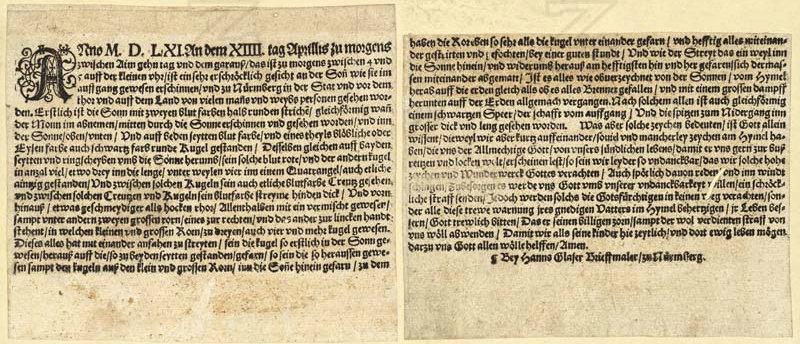 ANno M. D. LXI. An dem XIIII. tag Aprillis zu morgens
zwischen 4 vnd
5 auff der kleinen vhr / ist ein sehr erschröcklich gesicht an der Son wie sie im
auffgang gewesen erschinnen / vnd zu Nürmberg in der Stat vnd vor dem
thor vnd auff dem Land von vielen mans vnd weybs personen gesehen wor-
den. Erstlich ist die Sonn mit zweyen blutfarben halb runden strichē / gleichförmig wañ
der Monn im abnemen / mitten durch die Sonn erschinnen vnd gesehen worden / vnd inn
der Sonnē / oben / vnten / Vnd auff beden seytten blut farbe / vnd eines theyls blöbliche oder
Eysen farbe auch schwartz farb runde Kugel gestanden / Desselben gleichen auff bayden
seytten vnd ringscheyben vmb die Sonne herumb / sein solche blut rote / vnd der andern kugel
in anzal viel / etwo drey inn die lenge / vnter weylen vier inn einem Quatrangel / auch etliche
ainzig gestanden / Vnd zwischen solchen Kugeln sein auch etliche blutfarbe Creutz gesehen
vnd zwischen solchen Creutzen vnd Kugeln sein blutfarbe streyme hinden dick / Vnd vorn
hinauß / etwas geschmeydiger alls hocken rhor / Allenthalben mit ein vermischt gewesen /
sampt vnter andern zweyen grossen rorn / eines zur rechten / vnd das ander zur lincken handt
stehent / in welchen kleinen vnd grossen Rorn / zu dreyen / auch vier vnd mehr kugel gewesen.
Dieses alles hat mit einander anfahen zu streyten / sein die kugel so erstlich in der Sonn ge-
wesen / herauß auff die / so zu beyden seytten gestanden / gefarn / so sein die so heraussen gewe-
sen sampt den kugeln auß den klein vnd grossen Rorn / inn die Soñe hinein gefarn / zu dem
haben die Roreßen so sehr alls die kugel vnter einander gefarn / vnd hefftig alles miteinan-
der gestritten vnd gefochten / bey einer guten stundt / Vnd wie der Streyt das ein weyl inn
die Sonne hinein / vnd widerumb herauß am hefftigsten hin vnd her gefaren / sich der mas-
sen miteinander abgematt / Ist es alles wie obuerzeychnet von der Sonnen / vom Hymel
herab auff die erden gleich alls ob es alles Brennet gefallen / vnd mit einem grossen dampff
herunten auff der Erden allgemach vergangen. Nach solchem allen ist auch gleichförmig
einem schwartzen Speer / der schafft vom auffgang / Vnd die spitzen zum Nidergang inn
grosser dick vnd leng gesehen worden. Was aber solche zeychen bedeuten / ist Gott allein
wissent / dieweyl wir aber kurtz auff einander / so vnd mancherley zeychen am Hymel ha-
ben / die vns der Allmechtige Gott / von vnsers sündlichen lebens / damit er vns gern zur buß
reitzen vnd locken wolt / erscheinen lest / so sein wir leyder so vndanckbar / das wir solche hohe
zeychen vnd Wunderwerck Gottes verachten / Auch spötlich dauon reden / vnd inn windt
schlagen, Zubesorgen es werde vns Gott vmb vnserer vndanckbarkeyt willen / ein schröck-
liche straff senden / Jedoch werden solchs die Gotsfürchtigen in keinen weg verachten / son-
der alle diese trewe warnung jres gnedigen Vatters im Hymel behertzigen / jr Leben bes-
sern / Gott trewlich bitten / Das er seinen billigen zorn / sampt der wol verdienten straff von
vns wöll abwenden / Damit wir alls seine kinder hie zeytlich / vnd dort ewig leben mögen
darzu vns Gott allen wölle helffen / Amen.
¶ Bey Hanns Glaser Brieffmaler / zu Nürmberg.